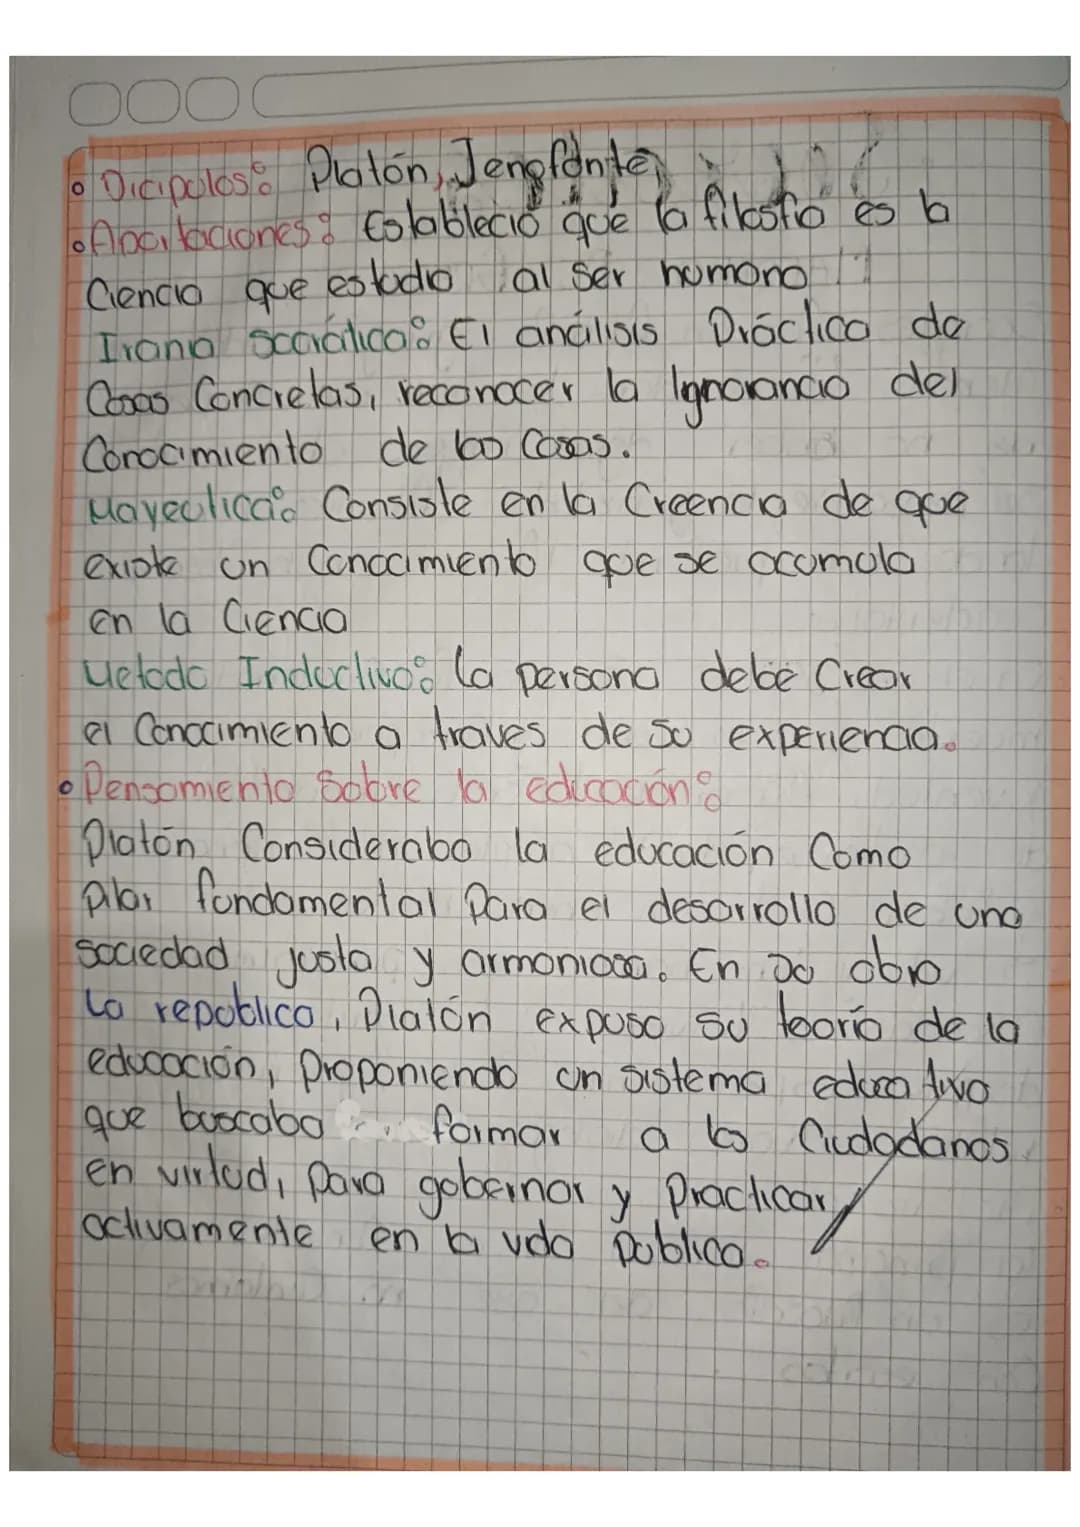 Dicipulos: Platón, Jenofónte,
Aporitaciones: Estableció que la filosfio es la
Ciencia que estudio al ser humano
Irono socrática: El análisis Práctico de
Cosas Concretas, reconocer la Ignorancia del
Conocimiento de las Cosas.
Mayeutica: Consiste en la Creencia de que
existe un Conocimiento que se acumula
en la Ciencia
Metodo Inductivo: la persona debe Crear
el Conocimiento a traves de su experiencia.
Pensamiento Sobre la educación:
Platón Consideraba la educación Como
pilar fundamental Para el desarrollo de una
sociedad justa y armoniosa. En su obra
La republica, Platón expuso su teoría de la
educación, Proponiendo un sistema educativo
que buscaba formar a los Ciudadanos
en virtud, Para gobernar y Practicar
activamente en la vida Publica.